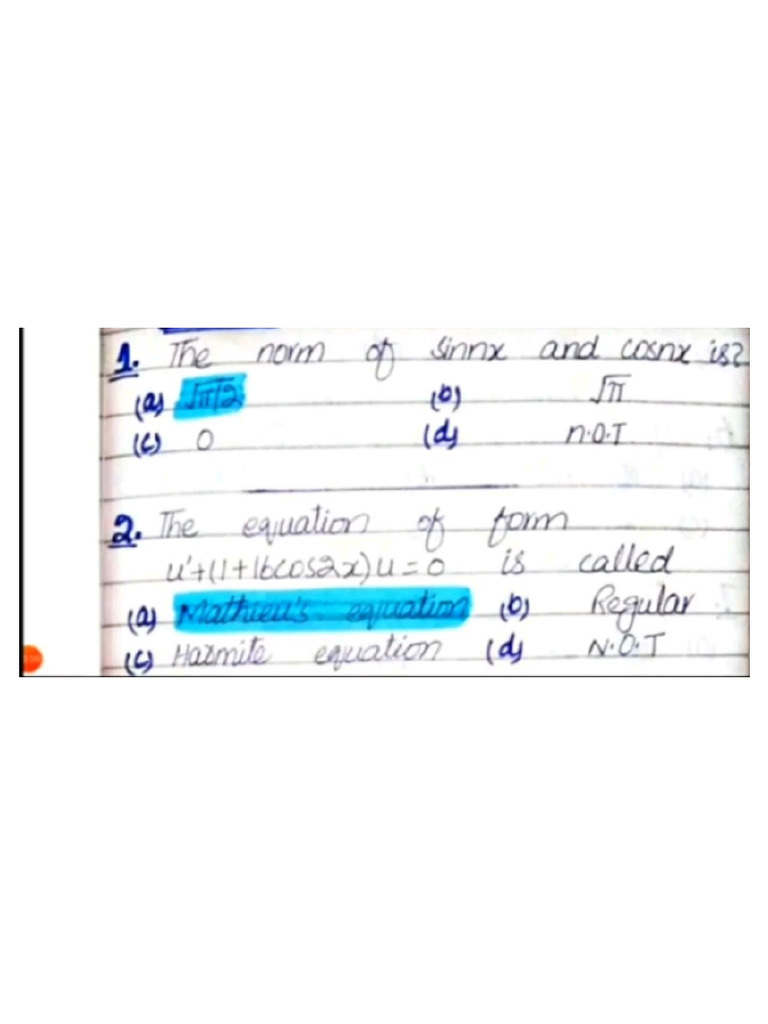 1. The norm of sinnx and cosnx is?
(a) √π/2 (b) √π
(c) 0 (d) n.O.T
2. The equation of form
u'+(1+16cos2x)u=0 is called
(a) Mathieu's equation (b) Regular
(c) Harmite equation (d) N.O.T